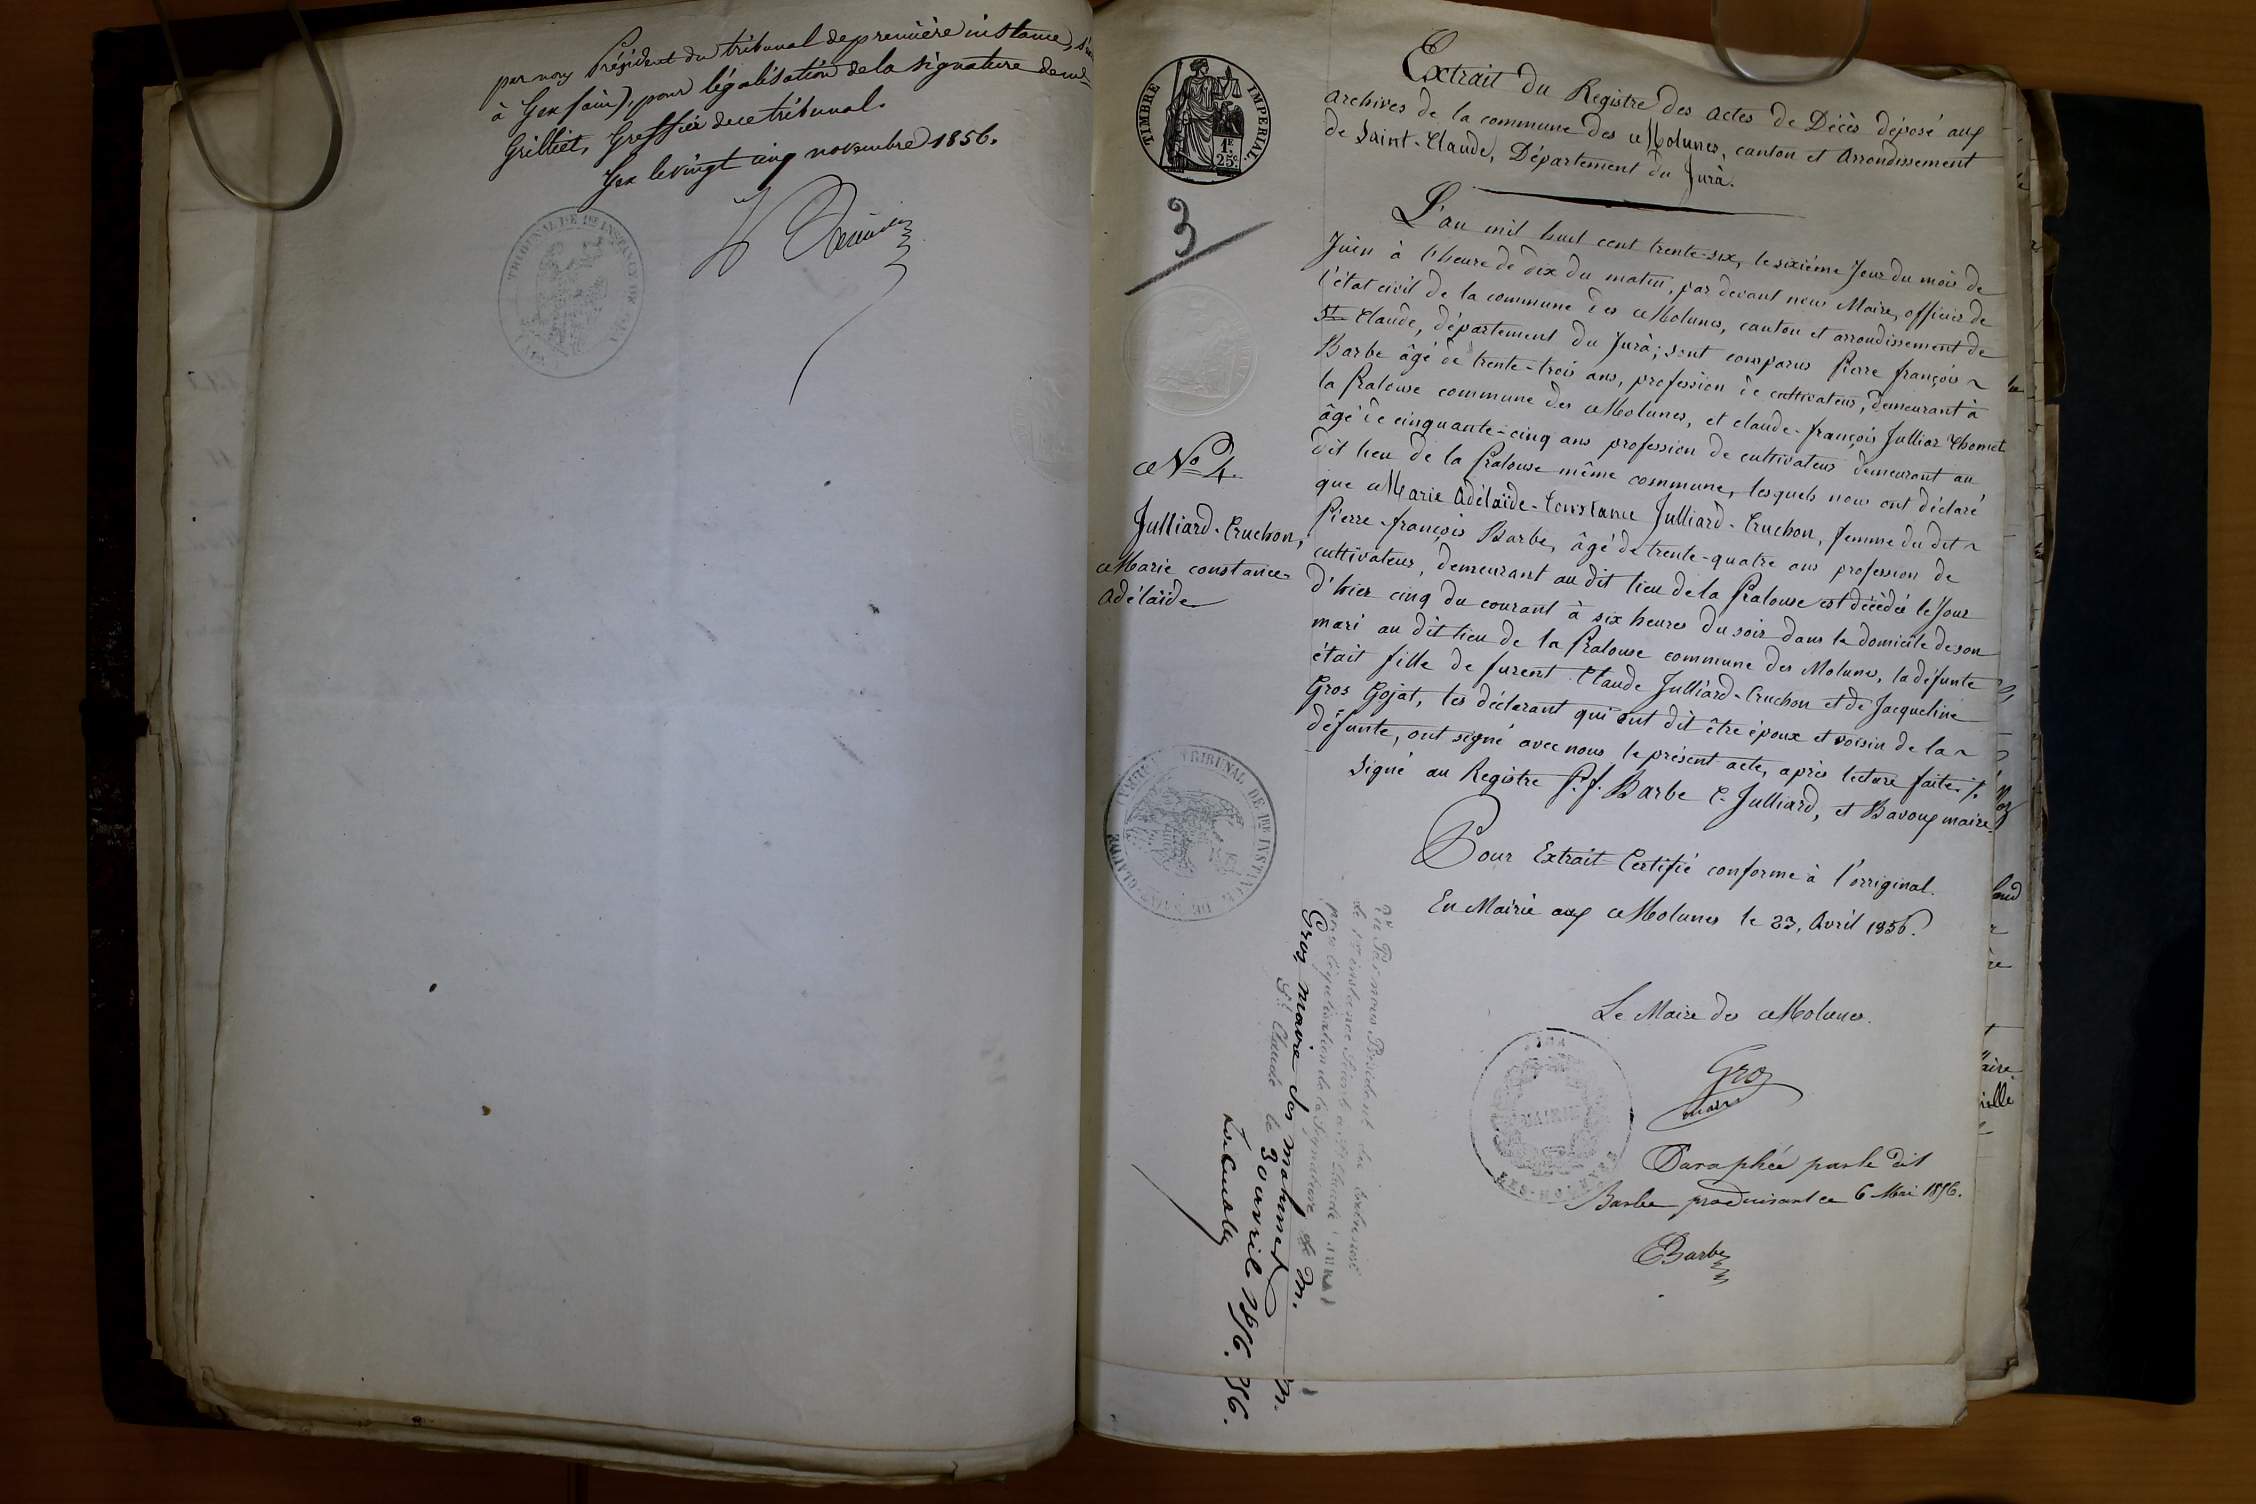 par nous Président du tribunal de première instance, séant
à Gex (ain), pour légalisation de la signature de mr
Grilliet, Greffier de ce tribunal.
Gex le vingt cinq novembre 1856.
TRIBUNAL DE 1RE INSTANCE DE GEX
TIMBRE IMPERIAL
1F 25c
3
Extrait du Registre des actes de Décès déposé aux
archives de la commune des Molunes, canton et Arrondissement
de Saint-Claude, Département du Jura.
L'an mil huit cent trente-six, le sixième Jour du mois de
Juin à l'heure de dix du matin, par devant nous Maire, officier de
l'état civil de la commune des Molunes, canton et arrondissement de
St Claude, département du Jura; sont comparus Pierre françois
Barbe âgé de trente-trois ans, profession de cultivateur, demeurant à
la Pralouse commune des Molunes, et claude-françois Julliar Thomet
âgé de cinquante-cinq ans profession de cultivateur demeurant au
dit lieu de la Pralouse même commune, lesquels nous ont déclaré
que Marie Adélaïde-Constance Julliard-Cruchon, femme du dit
Pierre-françois Barbe, âgé de trente-quatre ans profession de
cultivateur, demeurant au dit lieu de la Pralouse est décédée le Jour
d'hier cinq du courant à six heures du soir dans le domicile de son
mari au dit lieu de la Pralouse commune des Molunes, la défunte
était fille de furent Claude Julliard-Cruchon et de Jacqueline
Gros Gojat, les déclarant qui ont dit être époux et voisin de la
défunte, ont signé avec nous le présent acte, après lecture faite.
Signé au Registre P. f. Barbe C. Julliard, et Bavoux maire.
No 4.
Julliard-Cruchon,
Marie constance
Adélaïde
Pour Extrait Certifié conforme à l'orriginal.
En Mairie aux Molunes le 23, Avril 1856.
Le Maire des Molunes.
Gros
maire
MAIRIE
LES-MOLUNES
JURA
Paraphée par le dit
Barbe produisant ce 6 Mai 1856.
Barbe
TRIBUNAL DE 1RE INSTANCE DE SAINT-CLAUDE
Vu Par nous Président du tribunal
de 1re instance Séant à St Claude (Jura)
pour légalisation de la Signature de M.
Gros maire des molunes
St Claude le 30 avril 1856.
M.
56.